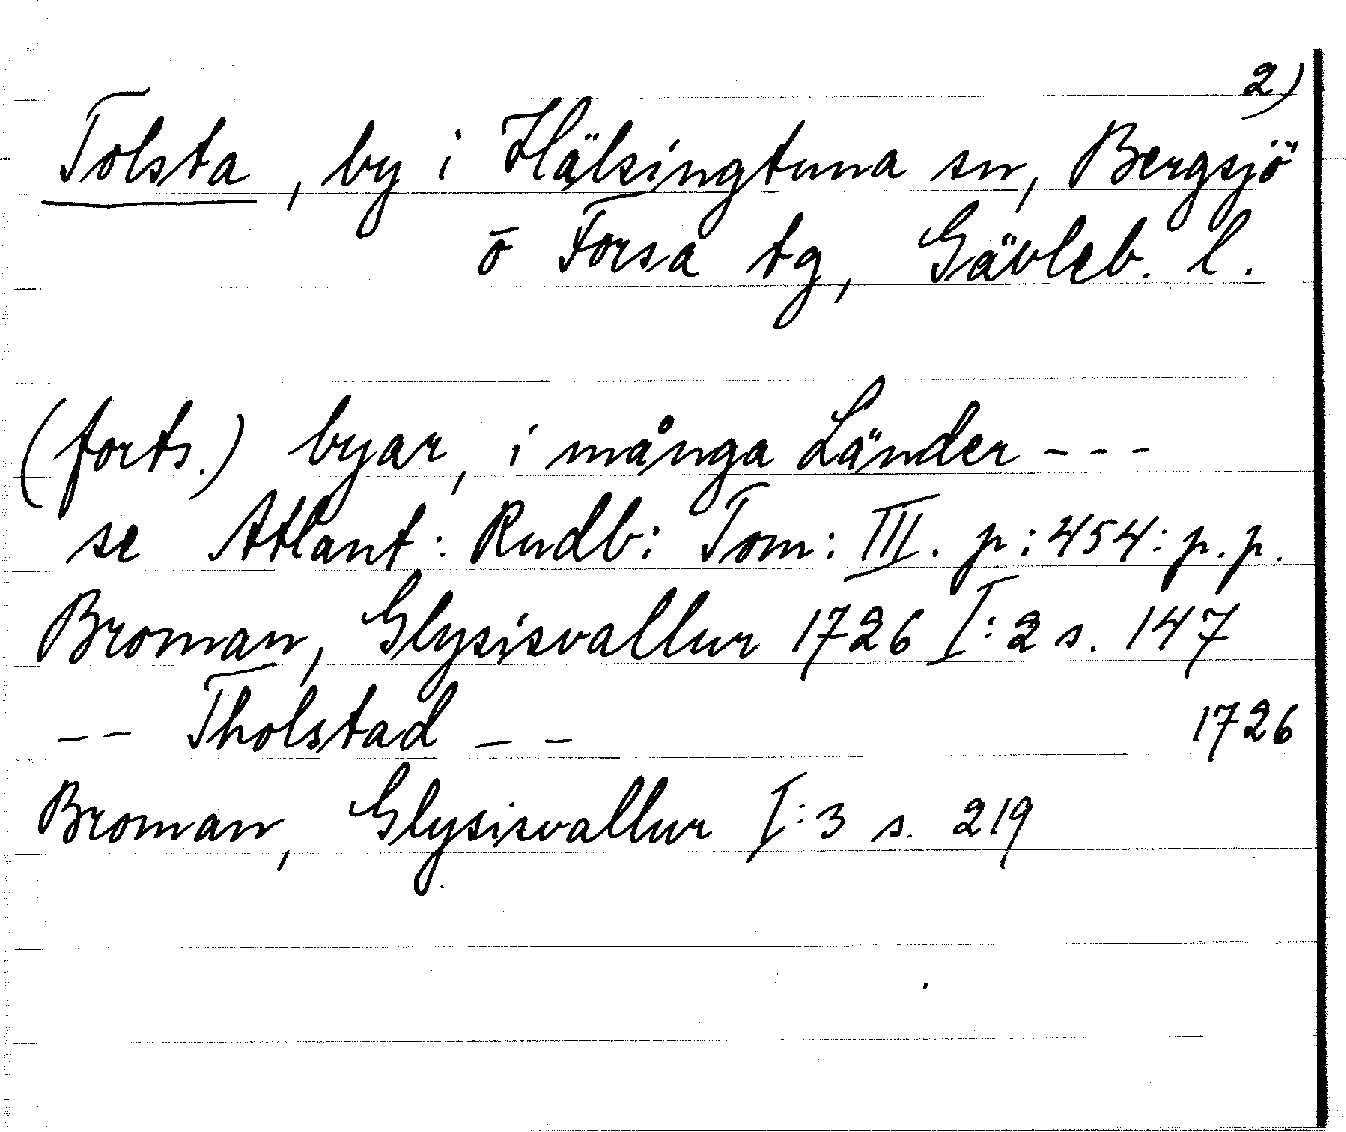 2)
Tolsta, by i Hälsingtuna sn, Bergsjö
o Forsa tg, Gävleb. l.
(forts.) byar, i många Länder - - -
se Atlant: Rudb: Tom: III. p: 454: p. p.
Broman, Glysisvallur 1726 I:2 s. 147
-- Tholstad -- 1726
Broman, Glysisvallur I:3 s. 219